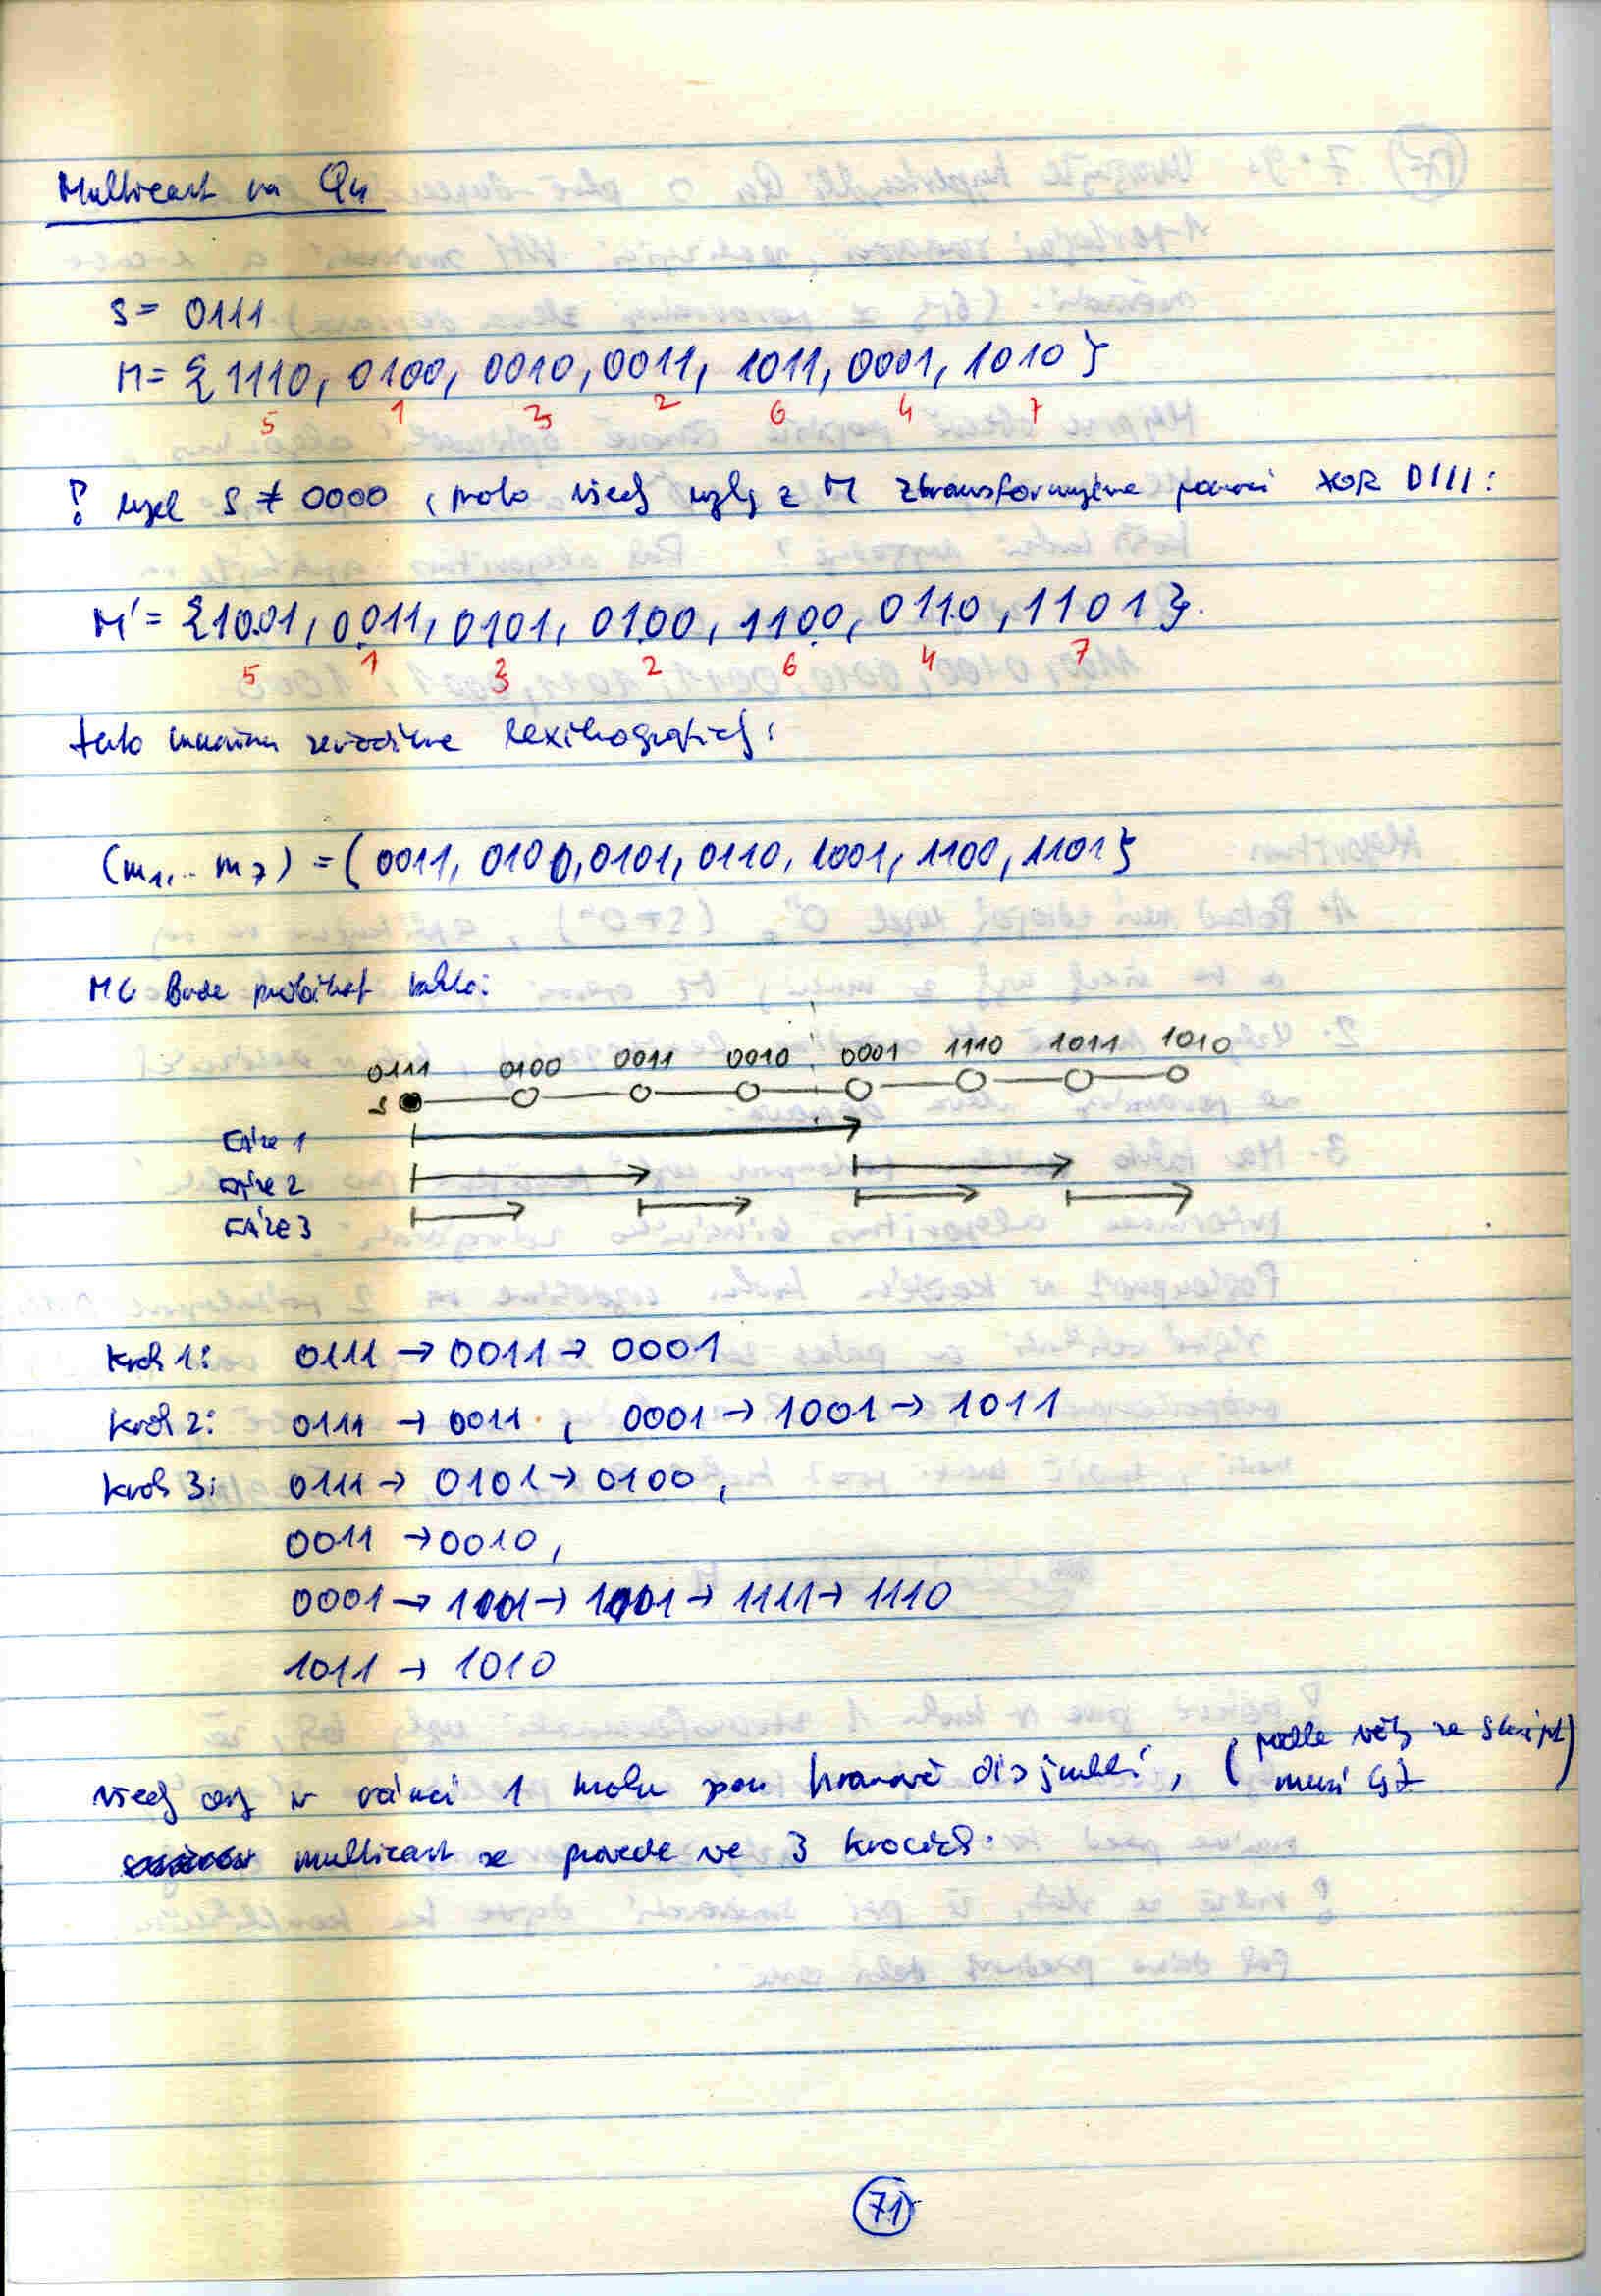 Multicast na Q4
S = 0111
M = { 1110, 0100, 0010, 0011, 1011, 0001, 1010 }
5 1 3 2 6 4 7
! uzel S ≠ 0000, proto všech uzly z M ztransformujeme pomocí XOR 0111:
M' = { 1001, 0011, 0101, 0100, 1100, 0110, 1101 }.
5 1 3 2 6 4 7
tuto množinu seřadíme lexikograficky:
(m1, .. m7) = ( 0011, 0100, 0101, 0110, 1001, 1100, 1101 }
MC Bude probíhat takto:
0111 0100 0011 0010 0001 1110 1011 1010
S
Fáze 1
Fáze 2
FÁZE 3
Krok 1: 0111 → 0011 → 0001
krok 2: 0111 → 0011 , 0001 → 1001 → 1011
krok 3: 0111 → 0101 → 0100 ,
0011 → 0010 ,
0001 → 1001 → 1111 → 1110
1011 → 1010
všech cesty v rámci 1 kroku jsou hranově disjunktní, ( podle věty ze skript
musí být )
multicast se provede ve 3 krocích.
71